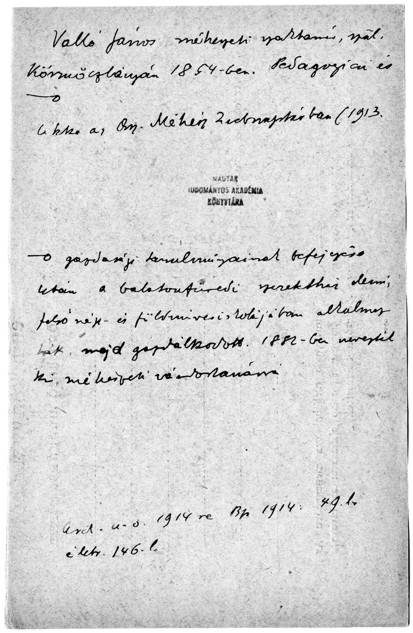 Valló János méhészeti szaktanár, szül.
Körmöczbányán 1854-ben. Pedagogiai és
—o
Cikke az Orsz. Méhész Zsebnaptárban (1913.
MAGYAR
TUDOMÁNYOS AKADÉMIA
KÖNYVTÁRA
—o gazdasági tanulmányainak befejezése
után a balatonfüredi szeretetház elemi,
felső nép- és földmivesiskolájában alkalmaz
ták, majd gazdálkodott. 1882-ben nevezték
ki, méhészeti vándortanárrá
u. o. 1914 re Bp 1914. 49 l.
életr. 146. l.